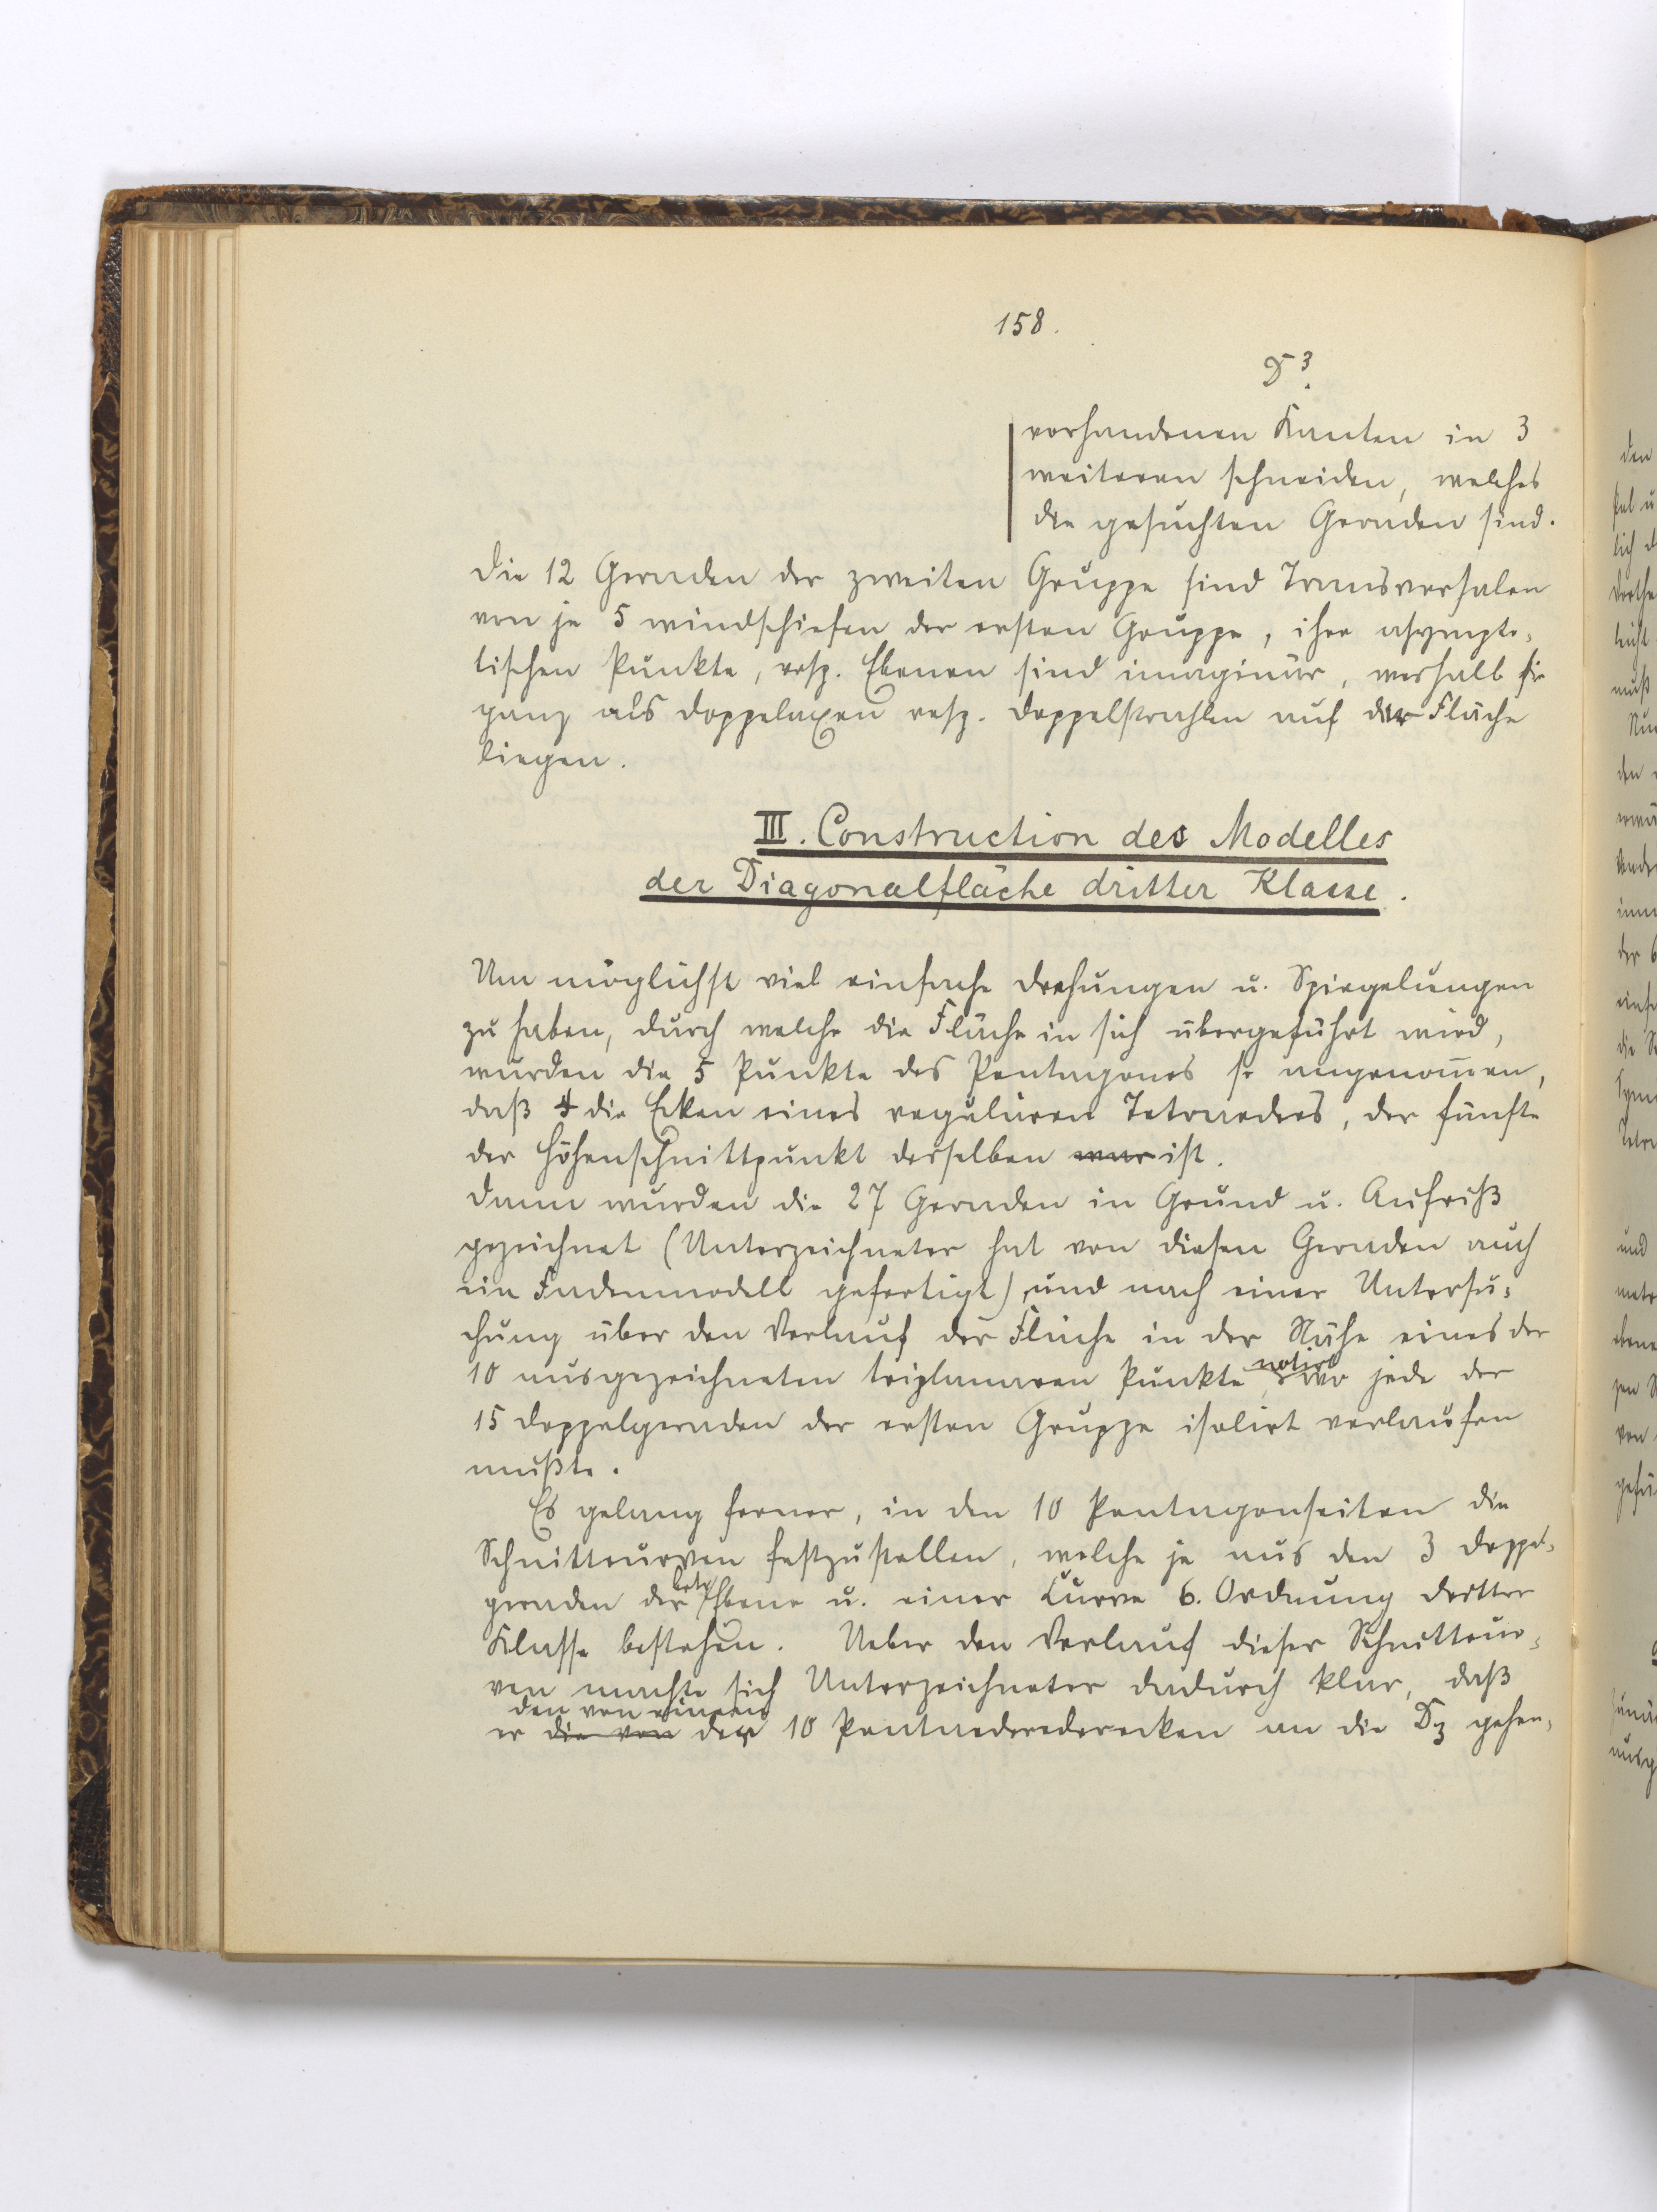 158.
D³.
vorhandenen Kanten in 3
weiteren schneiden, welches
die gesuchten Geraden sind.
Die 12 Geraden der zweiten Gruppe sind Transversalen
von je 5 windschiefen der ersten Gruppe, ihre asympto-
tischen Punkte, resp. Ebenen sind imaginär, weshalb sie
ganz als Doppelaxen resp. Doppelstrahlen auf der Fläche
liegen.
III. Construction des Modelles
der Diagonalfläche dritter Klasse.
Um möglichst viel einfache Drehungen u. Spiegelungen
zu haben, durch welche die Fläche in sich übergeführt wird,
wurden die 5 Punkte des Pentagones so angenom̅en,
daß 4 die Ecken eines regulären Tetraeders, der fünfte
der Höhenschnittpunkt desselben war ist.
Dann wurden die 27 Geraden in Grund u. Aufriß
gezeichnet (Unterzeichneter hat von diesen Geraden auch
ein Fadenmodell gefertigt), und nach einer Untersu-
chung über den Verlauf der Fläche in der Nähe eines der
10 ausgezeichneten triplanaren Punkte, notirt wo jede der
15 Doppelgeraden der ersten Gruppe isolirt verlaufen
mußte.
Es gelang ferner, in den 10 Pentagonseiten die
Schnittcurven festzustellen, welche je aus den 3 Doppel-
geraden der betr. Ebene u. einer Curve 6. Ordnung dritter
Klasse bestehen. Ueber den Verlauf dieser Schnittcur-
ven machte sich Unterzeichneter dadurch klar, daß
den von einem
er die von der 10 Pentaederederecken an die D₃ gehen-